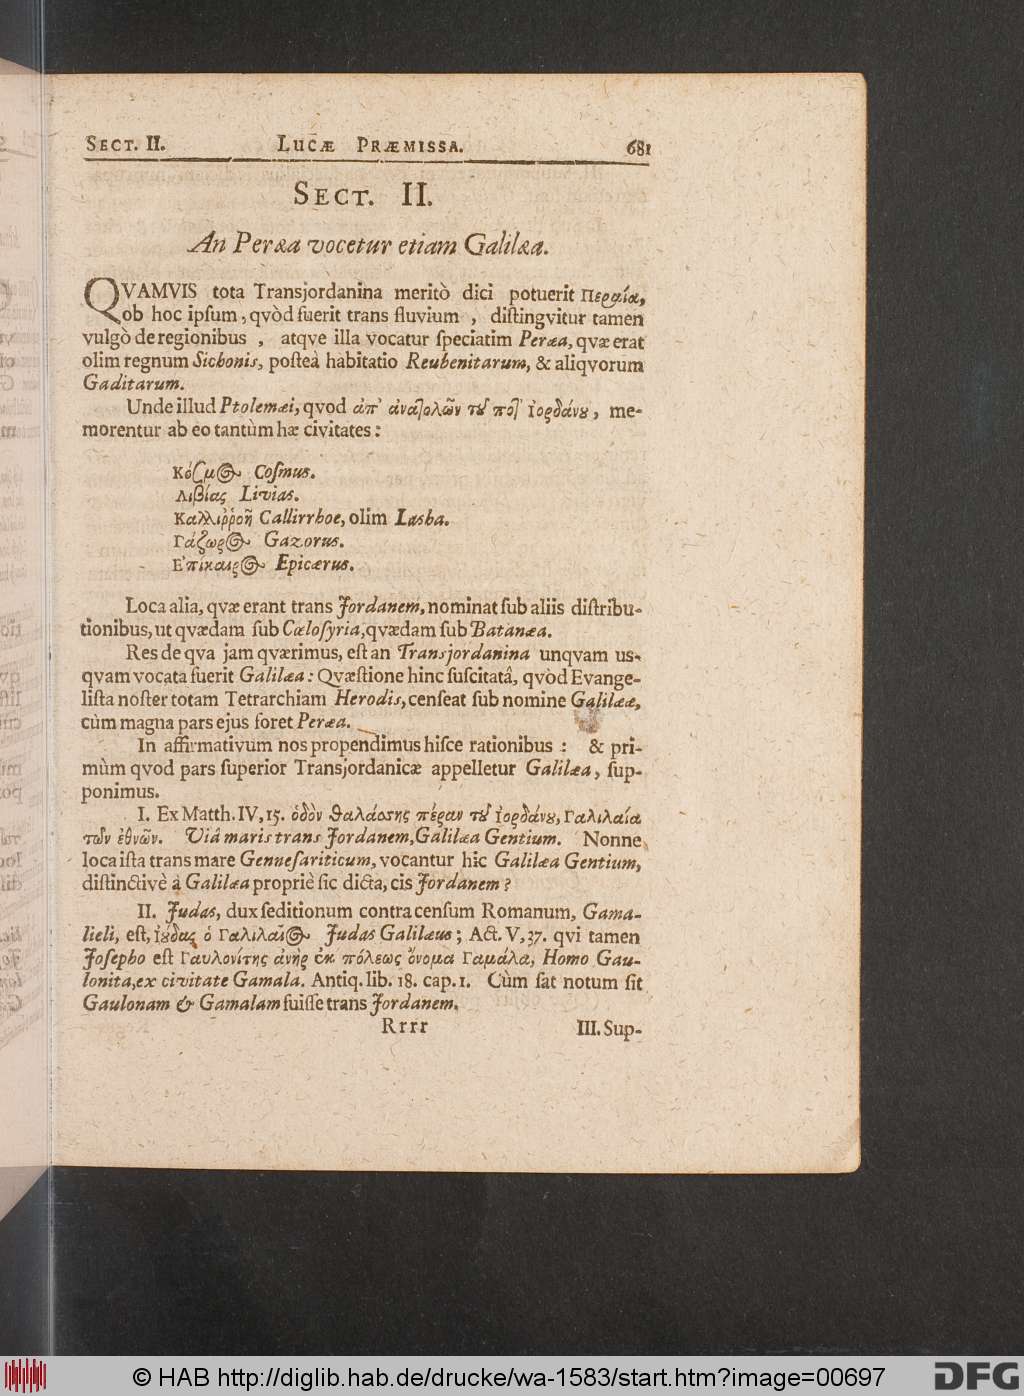 SECT. II. LUCÆ PRÆMISSA. 681
SECT. II.
An Peræa vocetur etiam Galilæa.
QVAMVIS tota Transjordanina meritò dici potuerit Περαία,
ob hoc ipsum, qvòd fuerit trans fluvium, distingvitur tamen
vulgò de regionibus, atqve illa vocatur speciatim Peræa, qvæ erat
olim regnum Sichonis, posteà habitatio Reubenitarum, & aliqvorum
Gaditarum.
Unde illud Ptolemæi, qvod ἀπ' ἀνατολῶν τȣ͂ ποτ' ἰορδάνȣ, me-
morentur ab eo tantùm hæ civitates:
Κόσμος Cosmus.
Λιβίας Livias.
Καλλιῤῥοὴ Callirrhoe, olim Lasha.
Γάζωρος Gazorus.
Ἐπίκαιρος Epicærus.
Loca alia, qvæ erant trans Jordanem, nominat sub aliis distribu-
tionibus, ut qvædam sub Cælosyria, qvædam sub Batanæa.
Res de qva jam qværimus, est an Transjordanina unqvam us-
qvam vocata fuerit Galilæa: Qvæstione hinc suscitatâ, qvòd Evange-
lista noster totam Tetrarchiam Herodis, censeat sub nomine Galilææ,
cùm magna pars ejus foret Peræa.
In affirmativum nos propendimus hisce rationibus: & pri-
mùm qvod pars superior Transjordanicæ appelletur Galilæa, sup-
ponimus.
I. Ex Matth. IV, 15. ὁδὸν θαλάσσης πέραν τȣ͂ ἰορδάνȣ, Γαλιλαία
τῶν ἐθνῶν. Viâ maris trans Jordanem, Galilæa Gentium. Nonne
loca ista trans mare Gennesariticum, vocantur hic Galilæa Gentium,
distinctivè à Galilæa propriè sic dicta, cis Jordanem?
II. Judas, dux seditionum contra censum Romanum, Gama-
lieli, est, ἰȣ́δας ὁ Γαλιλαῖος Judas Galilæus; Act. V, 37. qvi tamen
Josepho est Γαυλονίτης ἀνὴρ ἐκ πόλεως ὄνομα Γαμάλα, Homo Gau-
lonita, ex civitate Gamala. Antiq. lib. 18. cap. 1. Cùm sat notum sit
Gaulonam & Gamalam fuisse trans Jordanem.
Rrrr III. Sup-
© HAB http://diglib.hab.de/drucke/wa-1583/start.htm?image=00697 DFG